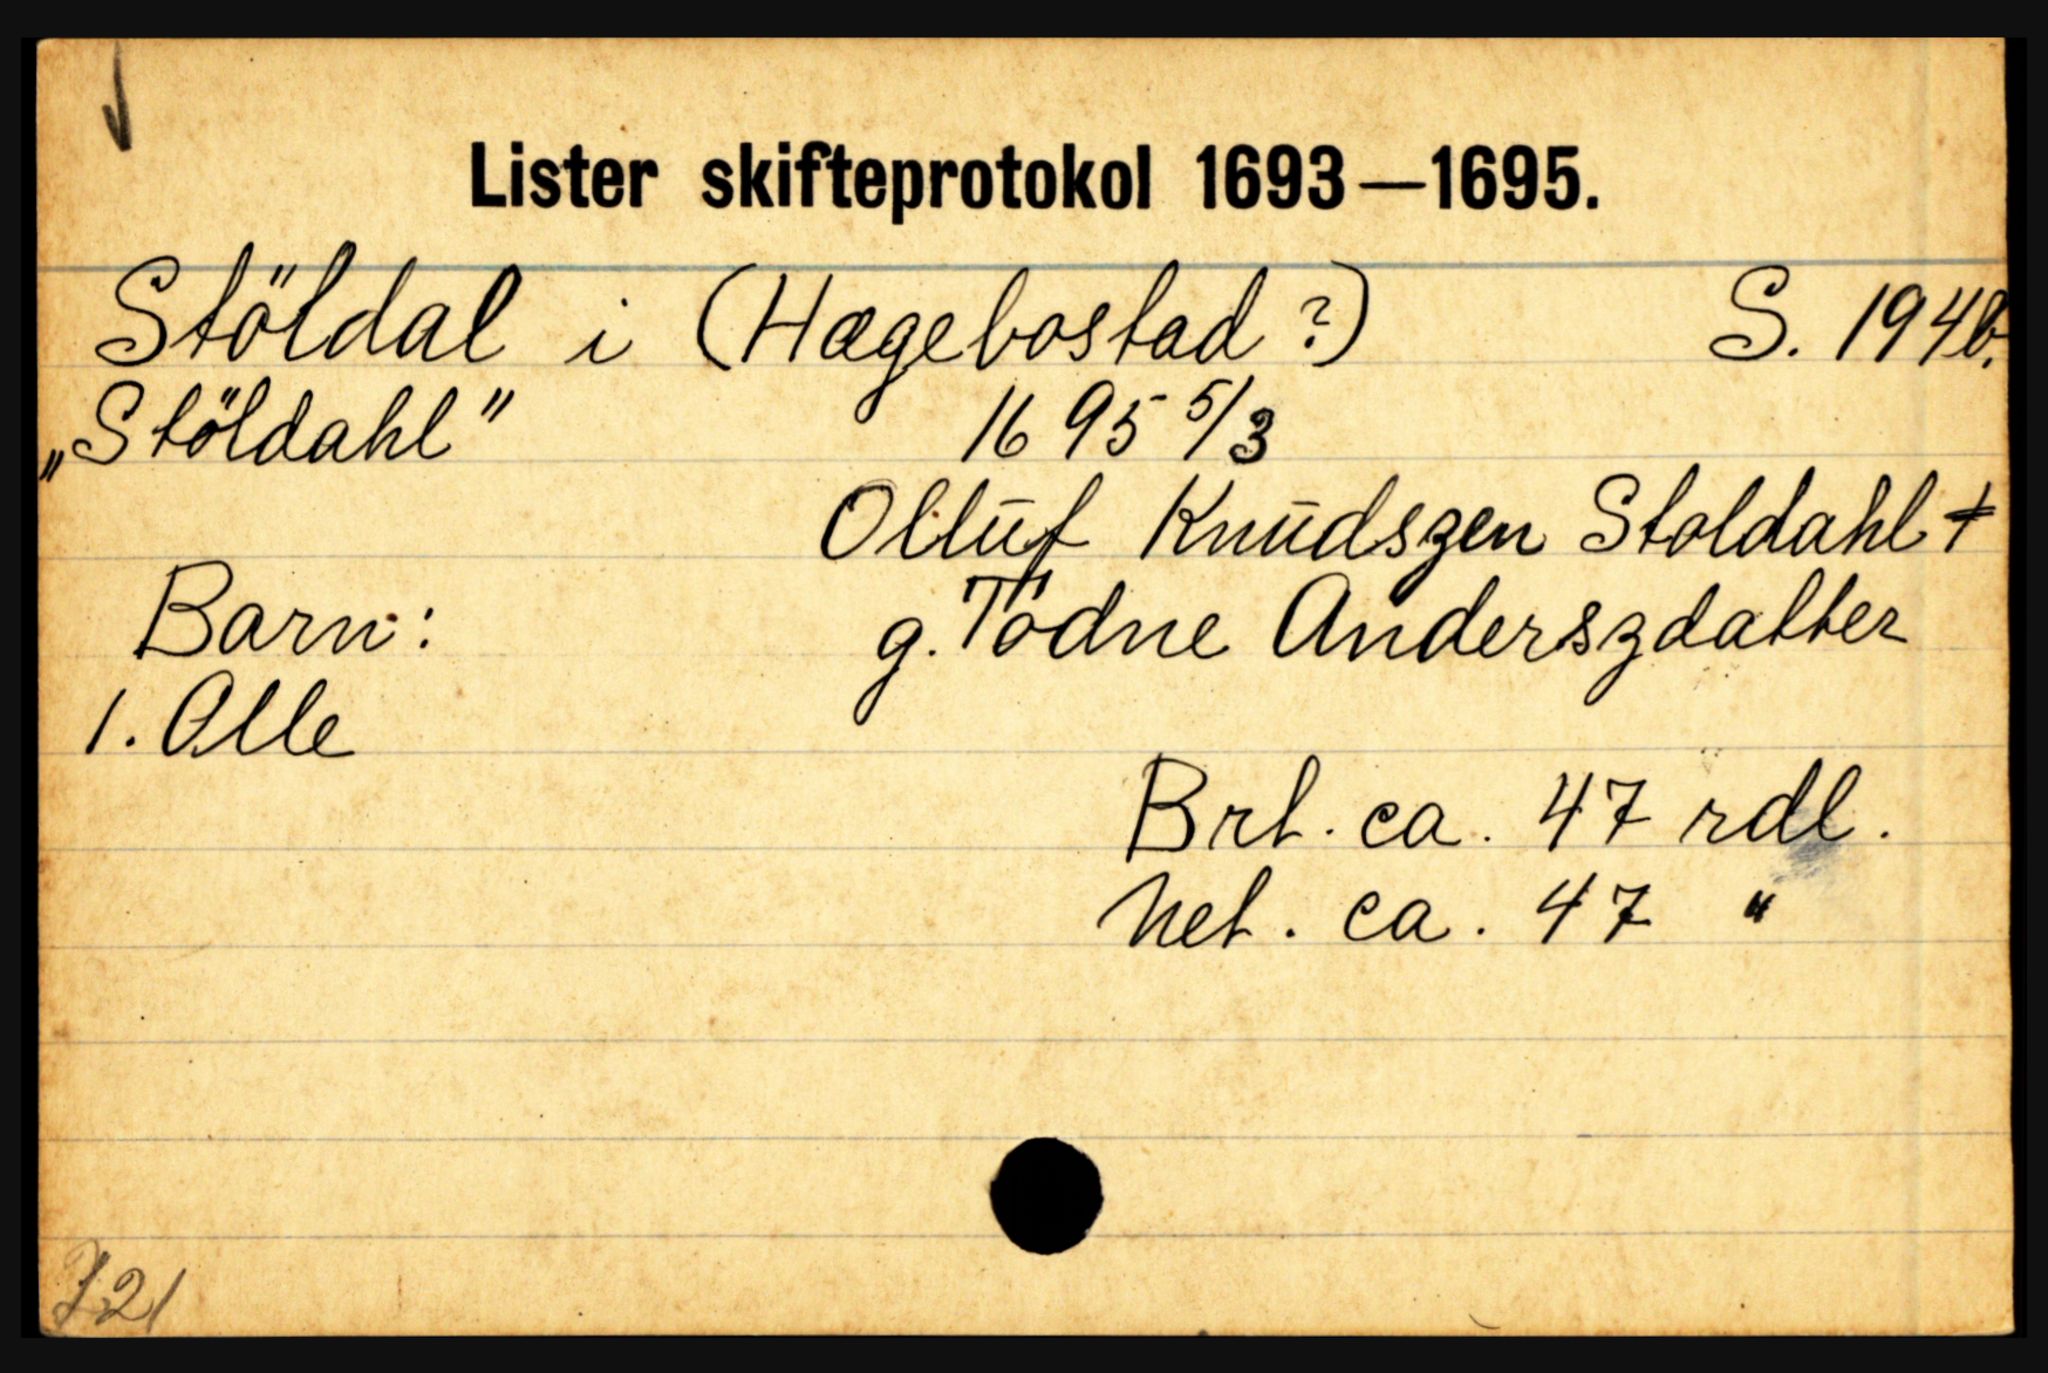 Lister skifteprotokol 1693—1695.
Stöldal i (Hægebostad?) S. 194b.
„Stöldahl" 1695 5/3
Olluf Knudszen Stoldahl +
Barn: g. Tödne Anderszdatter
1. Olle
Brt. ca. 47 rdl.
Net. ca. 47 "
721